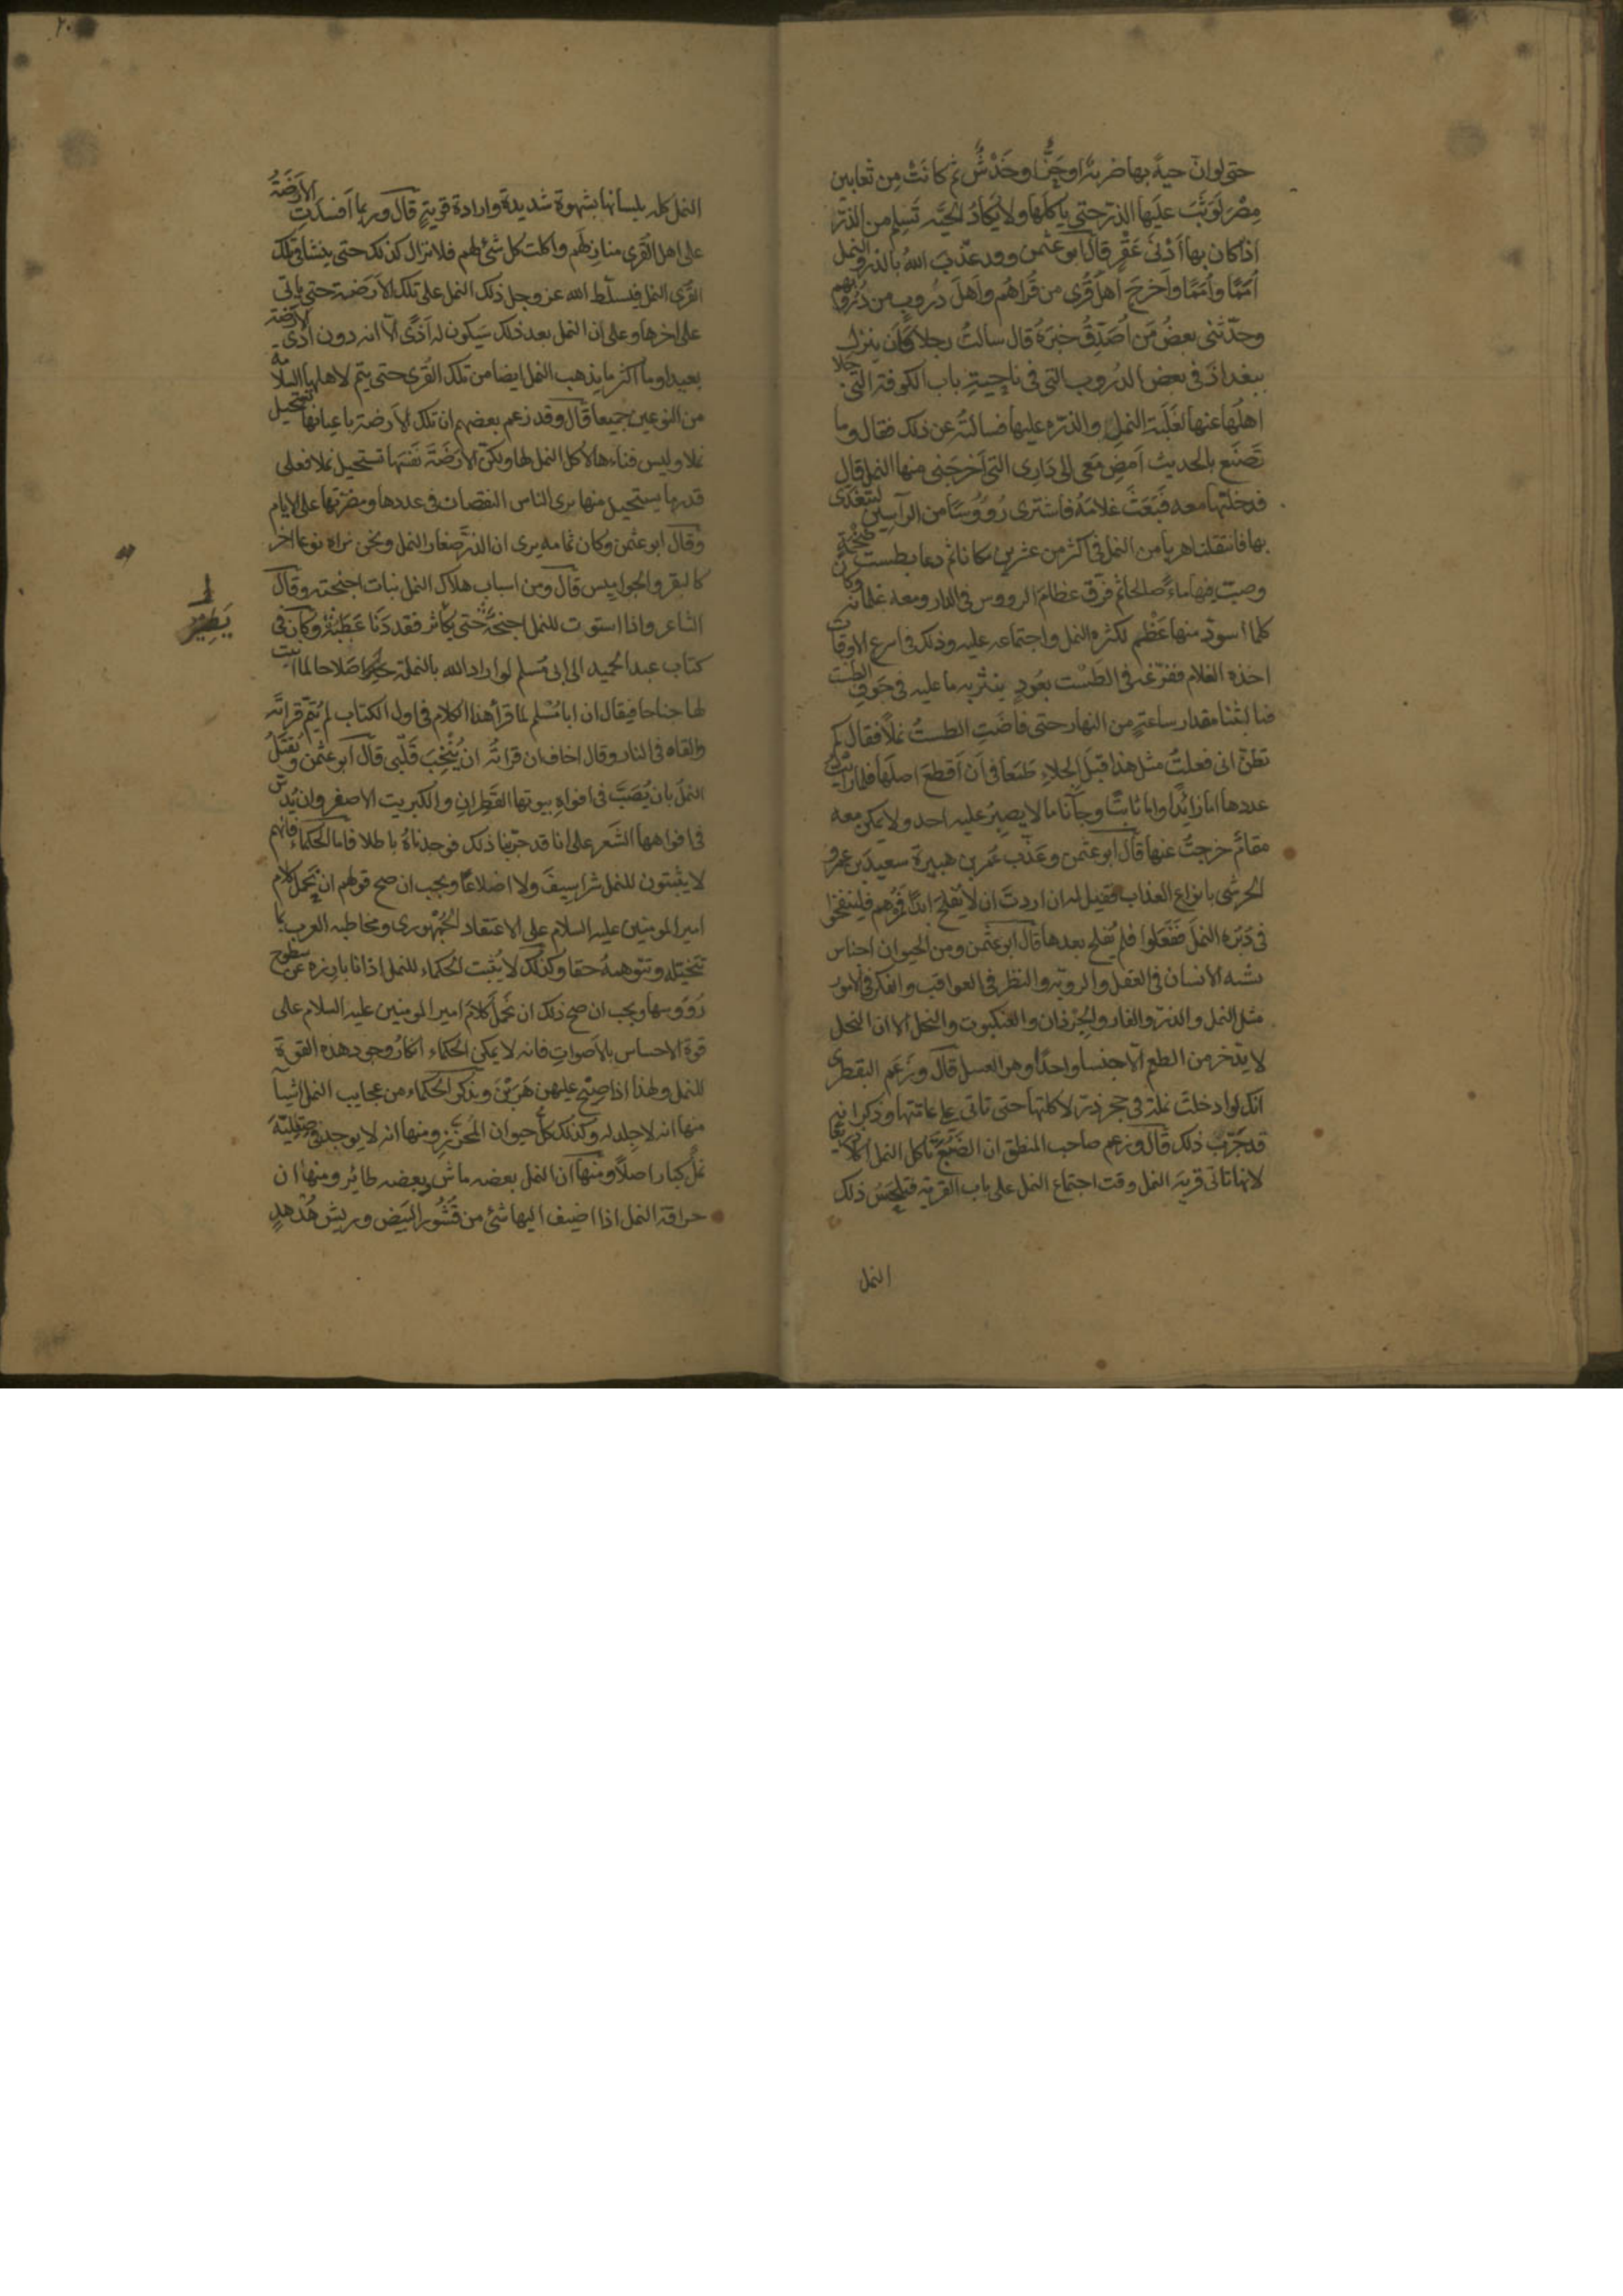 حتى لو ان حية بها ضربة او جرّ او خدش ثم كانت من ثعابين
مصر لوثب عليها الذر حتى ياكلها ولا يكاد الحية تسلم من الذر
اذا كان بها ادنى عقر قال ابو عثمن وقد عذب الله بالذر والنمل
امما وامما واخرج اهل قرى من قراهم واهل دروب من دروبهم
وحدثنى بعض من اصدق خبره قال سالت رجلا كان ينزل
ببغداذ فى بعض الدروب التى فى ناحية باب الكوفة التى جلا
اهلها عنها لغلبة النمل والذر عليها فسالته عن ذلك فقال وما
تصنع بالحديث امض معى الى دارى التى اخرجنى منها النمل قال
فدخلتها معه فبعث غلامه فاشترى رؤوسا من الرآسين ليتغدى
بها فانتقلنا هربا من النمل فى اكثر من عشرين مكانا ثم دعا بطست ضخمة
وصب فيها ماء صالحا ثم فرق عظام الرووس فى الدار ومعه غلمانه وكان
كلما اسود منها عظم لكثرة النمل واجتماعه عليه وذلك فى اسرع الاوقات
اخذه الغلام ففرغه فى الطست بعود ينثر به ما عليه فى جوف الطست
فما لبثنا مقدار ساعة من النهار حتى فاضت الطست نملا فقال كم
تظن انى فعلت مثل هذا قبل الجلاء طمعا فى ان اقطع اصلها فلما رايت
عددها اما زائدا واما ثابتا وجآنا ما لا يصبر عليه احد ولا يمكن معه
مقام خرجت عنها قال ابو عثمن وعذب عمر بن هبيرة سعيد بن عمرو
الحرشى بانواع العذاب فقيل له ان اردت ان لا يفلح ابدا فمرهم فلينفخوا
فى دبره النمل ففعلوا فلم يفلح بعدها قال ابو عثمن ومن الحيوان اجناس
يشبه الانسان فى العقل والروية والنظر فى العواقب والفكر فى الامور
مثل النمل والذر والفار والجرذان والعنكبوت والنحل الا ان النحل
لا يدخر من الطعم الا جنسا واحدا وهو العسل قال وزعم البقطرى
انك لو ادخلت نملة فى جحر ذر لاكلتها حتى تاتى على عامتها وذكر انه
قد جرب ذلك قال وزعم صاحب المنطق ان الضبع تاكل النمل اكلا ذريعا
لانها تاتى قرية النمل وقت اجتماع النمل على باب القرية فتلحس ذلك
النمل
النمل كله بلسانها بشهوة شديدة وارادة قوية قال وربما افسدت الارضة
على اهل القرى منازلهم واكلت كل شئ لهم فلا تزال كذلك حتى ينشا فى تلك
القرى النمل فيسلط الله عز وجل ذلك النمل على تلك الارضة حتى ياتى
على اخرها وعلى ان النمل بعد ذلك سيكون له اذى الا انه دون اذى الارضة
بعيدا وما اكثر ما يذهب النمل ايضا من تلك القرى حتى يتم لاهلها السلامة
من النوعين جميعا قال وقد زعم بعضهم ان تلك الارضة باعيانها تستحيل
نملا وليس فناءها لاكل النمل لها ولكن الارضة نفسها تستحيل نملا فعلى
قدر ما يستحيل منها يرى الناس النقصان فى عددها ومضرتها على الايام
وقال ابو عثمن وكان ثمامة يرى ان الذر صغار النمل ونحن نراه نوعا اخر
كالبقر والجواميس قال ومن اسباب هلاك النمل نبات اجنحته وقال
الشاعر واذا استوت للنمل اجنحة حتى يطير فقد دنا عطبه وكان فى
يطير
كتاب عبد الحميد الى ابى مسلم لو اراد الله بالنملة صلاحا لما انبت
لها جناحا فيقال ان ابا مسلم لما قرأ هذا الكلام فى اول الكتاب لم يتم قراته
والقاه فى النار وقال اخاف ان قراته ان ينخب قلبى قال ابو عثمن ويقتل
النمل بان يصب فى افواه بيوتها القطران والكبريت الاصفر وان يدس
فى افواهها الشعر على انا قد جربنا ذلك فوجدناه باطلا فاما الحكماء فانهم
لا يثبتون للنمل شراسيف ولا اضلاعا ويجب ان صح قولهم ان يحمل كلام
امير المومنين عليه السلام على الاعتقاد الجمهورى ومخاطبة العرب بما
تتخيله وتتوهمه حقا وكذلك لا يثبت الحكماء للنمل اذانا بارزة عن سطوح
رؤوسها ويجب ان صح ذلك ان نحمل كلام امير المومنين عليه السلام على
قوة الاحساس بالاصوات فانه لا يمكن الحكماء انكار وجود هذه القوة
للنمل ولهذا اذا صيح عليهن هربن ويذكر الحكماء من عجايب النمل اشيآ
منها انه لا جلد له وكذلك كل حيوان المحزز ومنها انه لا يوجد فى صقلية
نمل كبار اصلا ومنها ان النمل بعضه ماش وبعضه طائر ومنها ان
حراقة النمل اذا اضيف اليها شئ من قشور البيض وريش هدهد